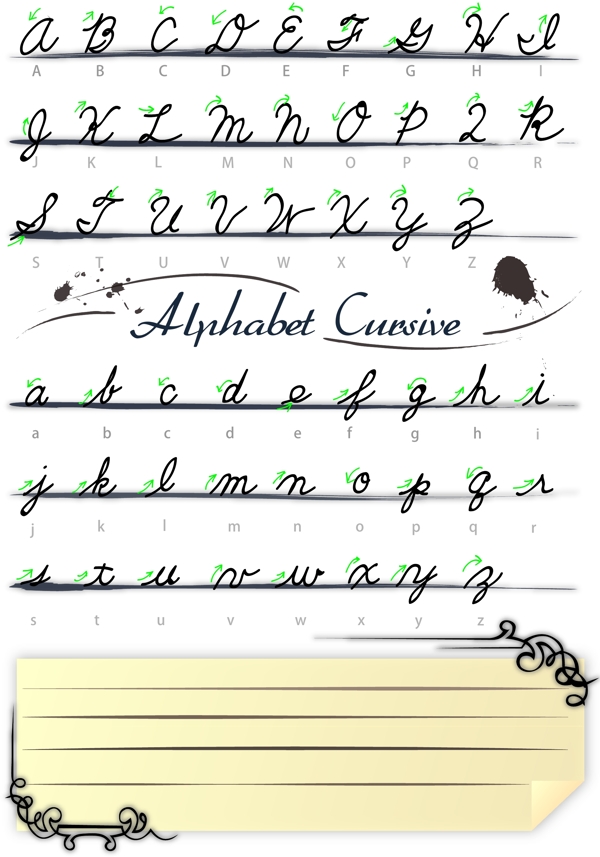 A B C D E F G H I
A B C D E F G H I
J K L M N O P Q R
J K L M N O P Q R
S T U V W X Y Z
S T U V W X Y Z
Alphabet Cursive
a b c d e f g h i
a b c d e f g h i
j k l m n o p q r
j k l m n o p q r
s t u v w x y z
s t u v w x y z